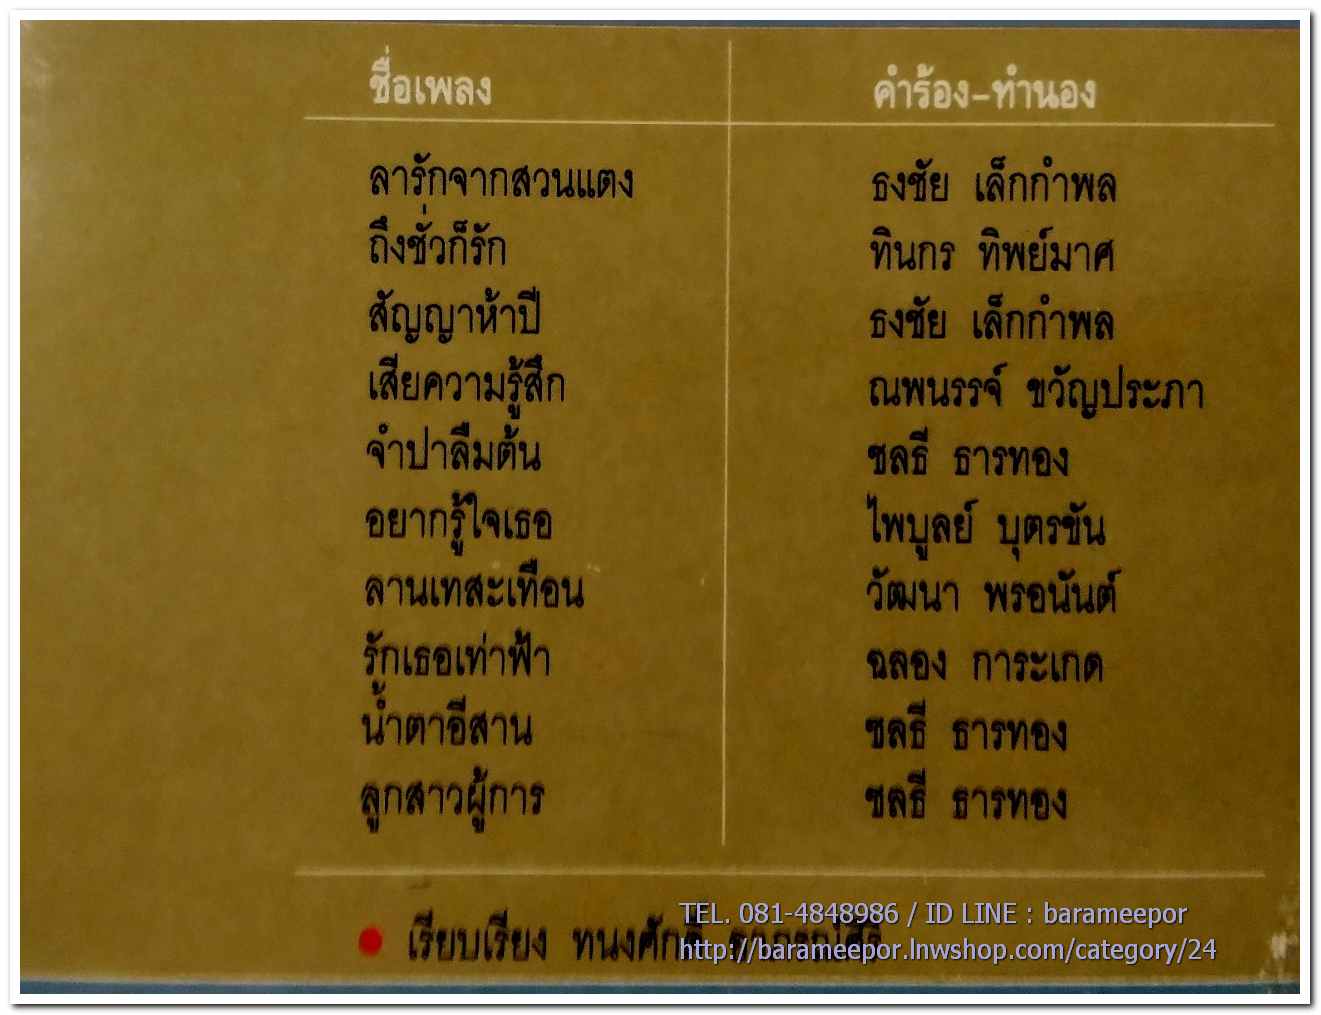 ชื่อเพลง คำร้อง-ทำนอง
ลารักจากสวนแตง ธงชัย เล็กกำพล
ถึงชั่วก็รัก ทินกร ทิพย์มาศ
สัญญาห้าปี ธงชัย เล็กกำพล
เสียความรู้สึก ณพนรรจ์ ขวัญประภา
จำปาลืมต้น ชลธี ธารทอง
อยากรู้ใจเธอ ไพบูลย์ บุตรขัน
ลานเทสะเทือน วัฒนา พรอนันต์
รักเธอเท่าฟ้า ฉลอง การะเกด
น้ำตาอีสาน ชลธี ธารทอง
ลูกสาวผู้การ ชลธี ธารทอง
เรียบเรียง ทนงศักดิ์
TEL. 081-4848986 / ID LINE : barameepor
http://barameepor.lnwshop.com/category/24